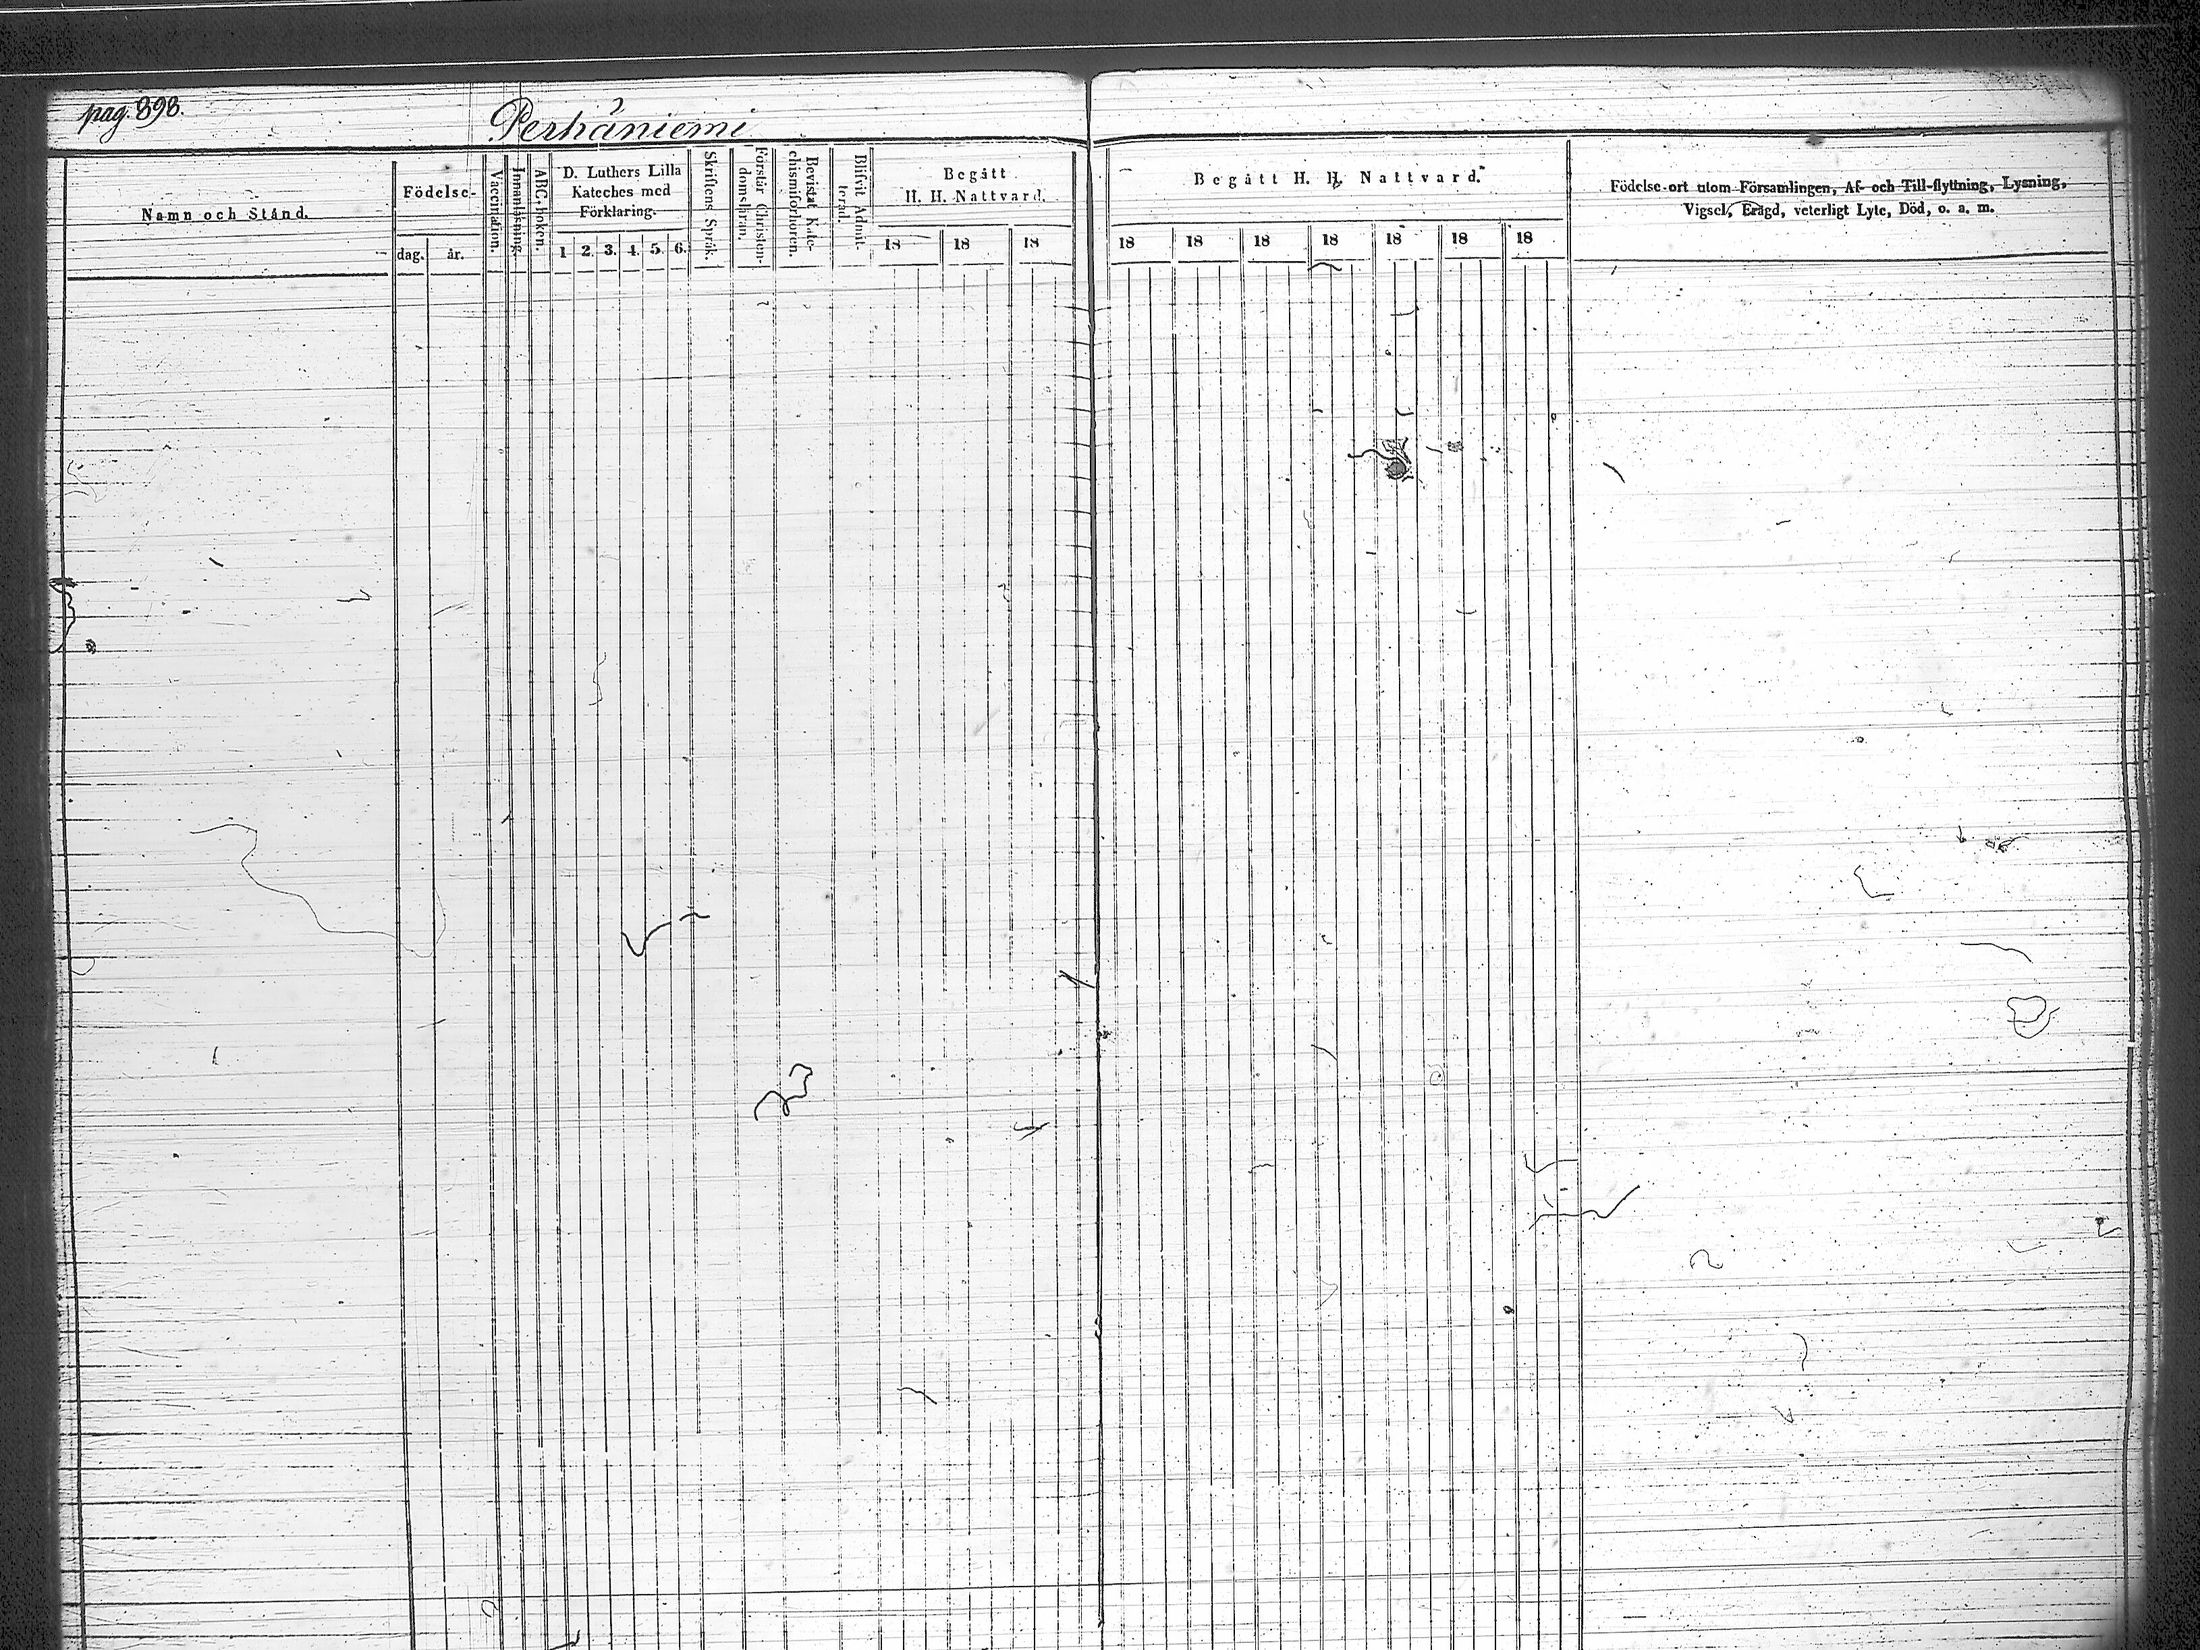 pag. 898.
Perhäniemi
Namn och Stånd.
Födelse-
dag. år.
Vaccination.
Innanläsning.
ABC-boken.
D. Luthers Lilla
Kateches med
Förklaring.
1 2. 3. 4. 5. 6.
Skriftens Språk.
Förstår Christen-
domsläran.
Bevistat Kate-
chismiförhören.
Blifvit Admit-
terad.
Begått
H. H. Nattvard.
18 18 18
Begått H. H. Nattvard.
18 18 18 18 18 18 18
Födelse-ort utom Församlingen, Af- och Till-flyttning, Lysning,
Vigsel, Erägd, veterligt Lyte, Död, o. a. m.